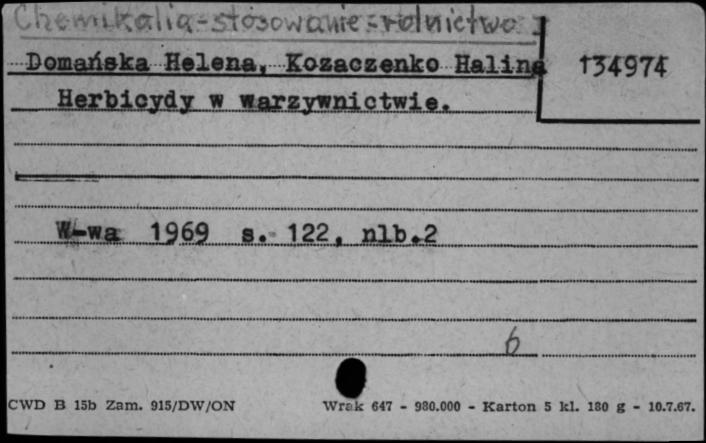 Chemikalia-stosowanie-rolnictwo
Domańska Helena, Kozaczenko Halina 134974
Herbicydy w warzywnictwie.
W-wa 1969 s. 122, nlb.2
6
CWD B 15b Zam. 915/DW/ON Wrak 647 - 980.000 - Karton 5 kl. 180 g - 10.7.67.